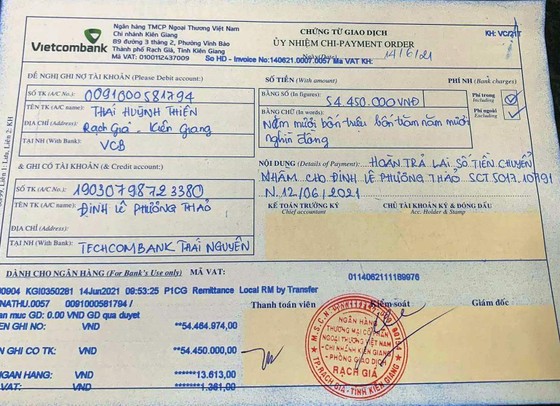 Vietcombank
Ngân hàng TMCP Ngoại Thương Việt Nam
Chi nhánh Kiên Giang
89 đường 3 tháng 2, Phường Vĩnh Bảo
Thành phố Rạch Giá, Tỉnh Kiên Giang
Mã VAT: 0100112437009
CHỨNG TỪ GIAO DỊCH
ỦY NHIỆM CHI-PAYMENT ORDER
KH: VC/21T
So HD - Invoice No:140621.0007.0057 Ma VAT KH:
14/6/21
ĐỀ NGHỊ GHI NỢ TÀI KHOẢN (Please Debit account):
SỐ TK (A/C No.): 0091000581794
TÊN TK (A/C name): THÁI HUỲNH THIÊN
ĐỊA CHỈ (Address): Rạch Giá - Kiên Giang
TẠI NH (With Bank): VCB
& GHI CÓ TÀI KHOẢN (& Credit account):
SỐ TK (A/C No.): 19030798723380
TÊN TK (A/C name): ĐINH LÊ PHƯƠNG THẢO
ĐỊA CHỈ (Address):
TẠI NH (With Bank): TECHCOMBANK THÁI NGUYÊN
SỐ TIỀN (With amount)
PHÍ NH (Bank charges)
BẰNG SỐ (In figures): 54.450.000 VNĐ
Phí trong
Including
BẰNG CHỮ (In words):
Phí ngoài
Excluding
Năm mươi bốn triệu bốn trăm năm mươi
nghìn đồng
NỘI DUNG (Details of Payment): HOÀN TRẢ LẠI SỐ TIỀN CHUYỂN
NHẦM CHO ĐINH LÊ PHƯƠNG THẢO SCT 5017.10791
N.12/06/2021
KẾ TOÁN TRƯỞNG KÝ
Chief accountant
CHỦ TÀI KHOẢN KÝ & ĐÓNG DẤU
Acc. Holder & Stamp
DÀNH CHO NGÂN HÀNG (For Bank's Use only) MÃ VAT:
0114062111189976
00904 KGI0350281 14Jun2021 09:53:25 P1CG Remittance Local RM by Transfer
NATHU.0057 0091000581794 /
an muc GD: 0.00 VND GD qua duyet
EN GHI NO: VND **54,464,974,00
EN GHI CO TK: VND **54.450.000,00
NGAN HANG: VND **13.613,00
VAT: VND **1.361,00
Thanh toán viên
Kiểm soát
Giám đốc
NGÂN HÀNG
THƯƠNG MẠI CỔ PHẦN
NGOẠI THƯƠNG VIỆT NAM
- CHI NHÁNH KIÊN GIANG
- PHÒNG GIAO DỊCH
RẠCH GIÁ
TP.RẠCH GIÁ - TỈNH KIÊN GIANG